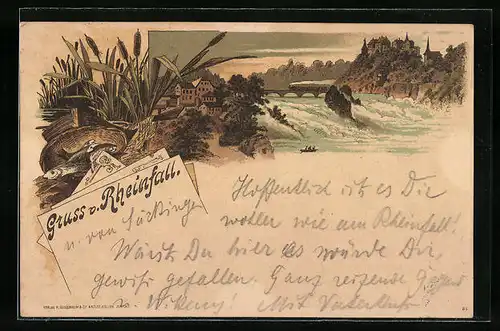 Gruss v. Rheinfall.
u. von Säckingen
Hoffentlich ist es Dir
wohler wie am Rheinfall!
Wärst Du hier es würde Dir,
gewiss gefallen. Ganz reizende Gegend
Mit